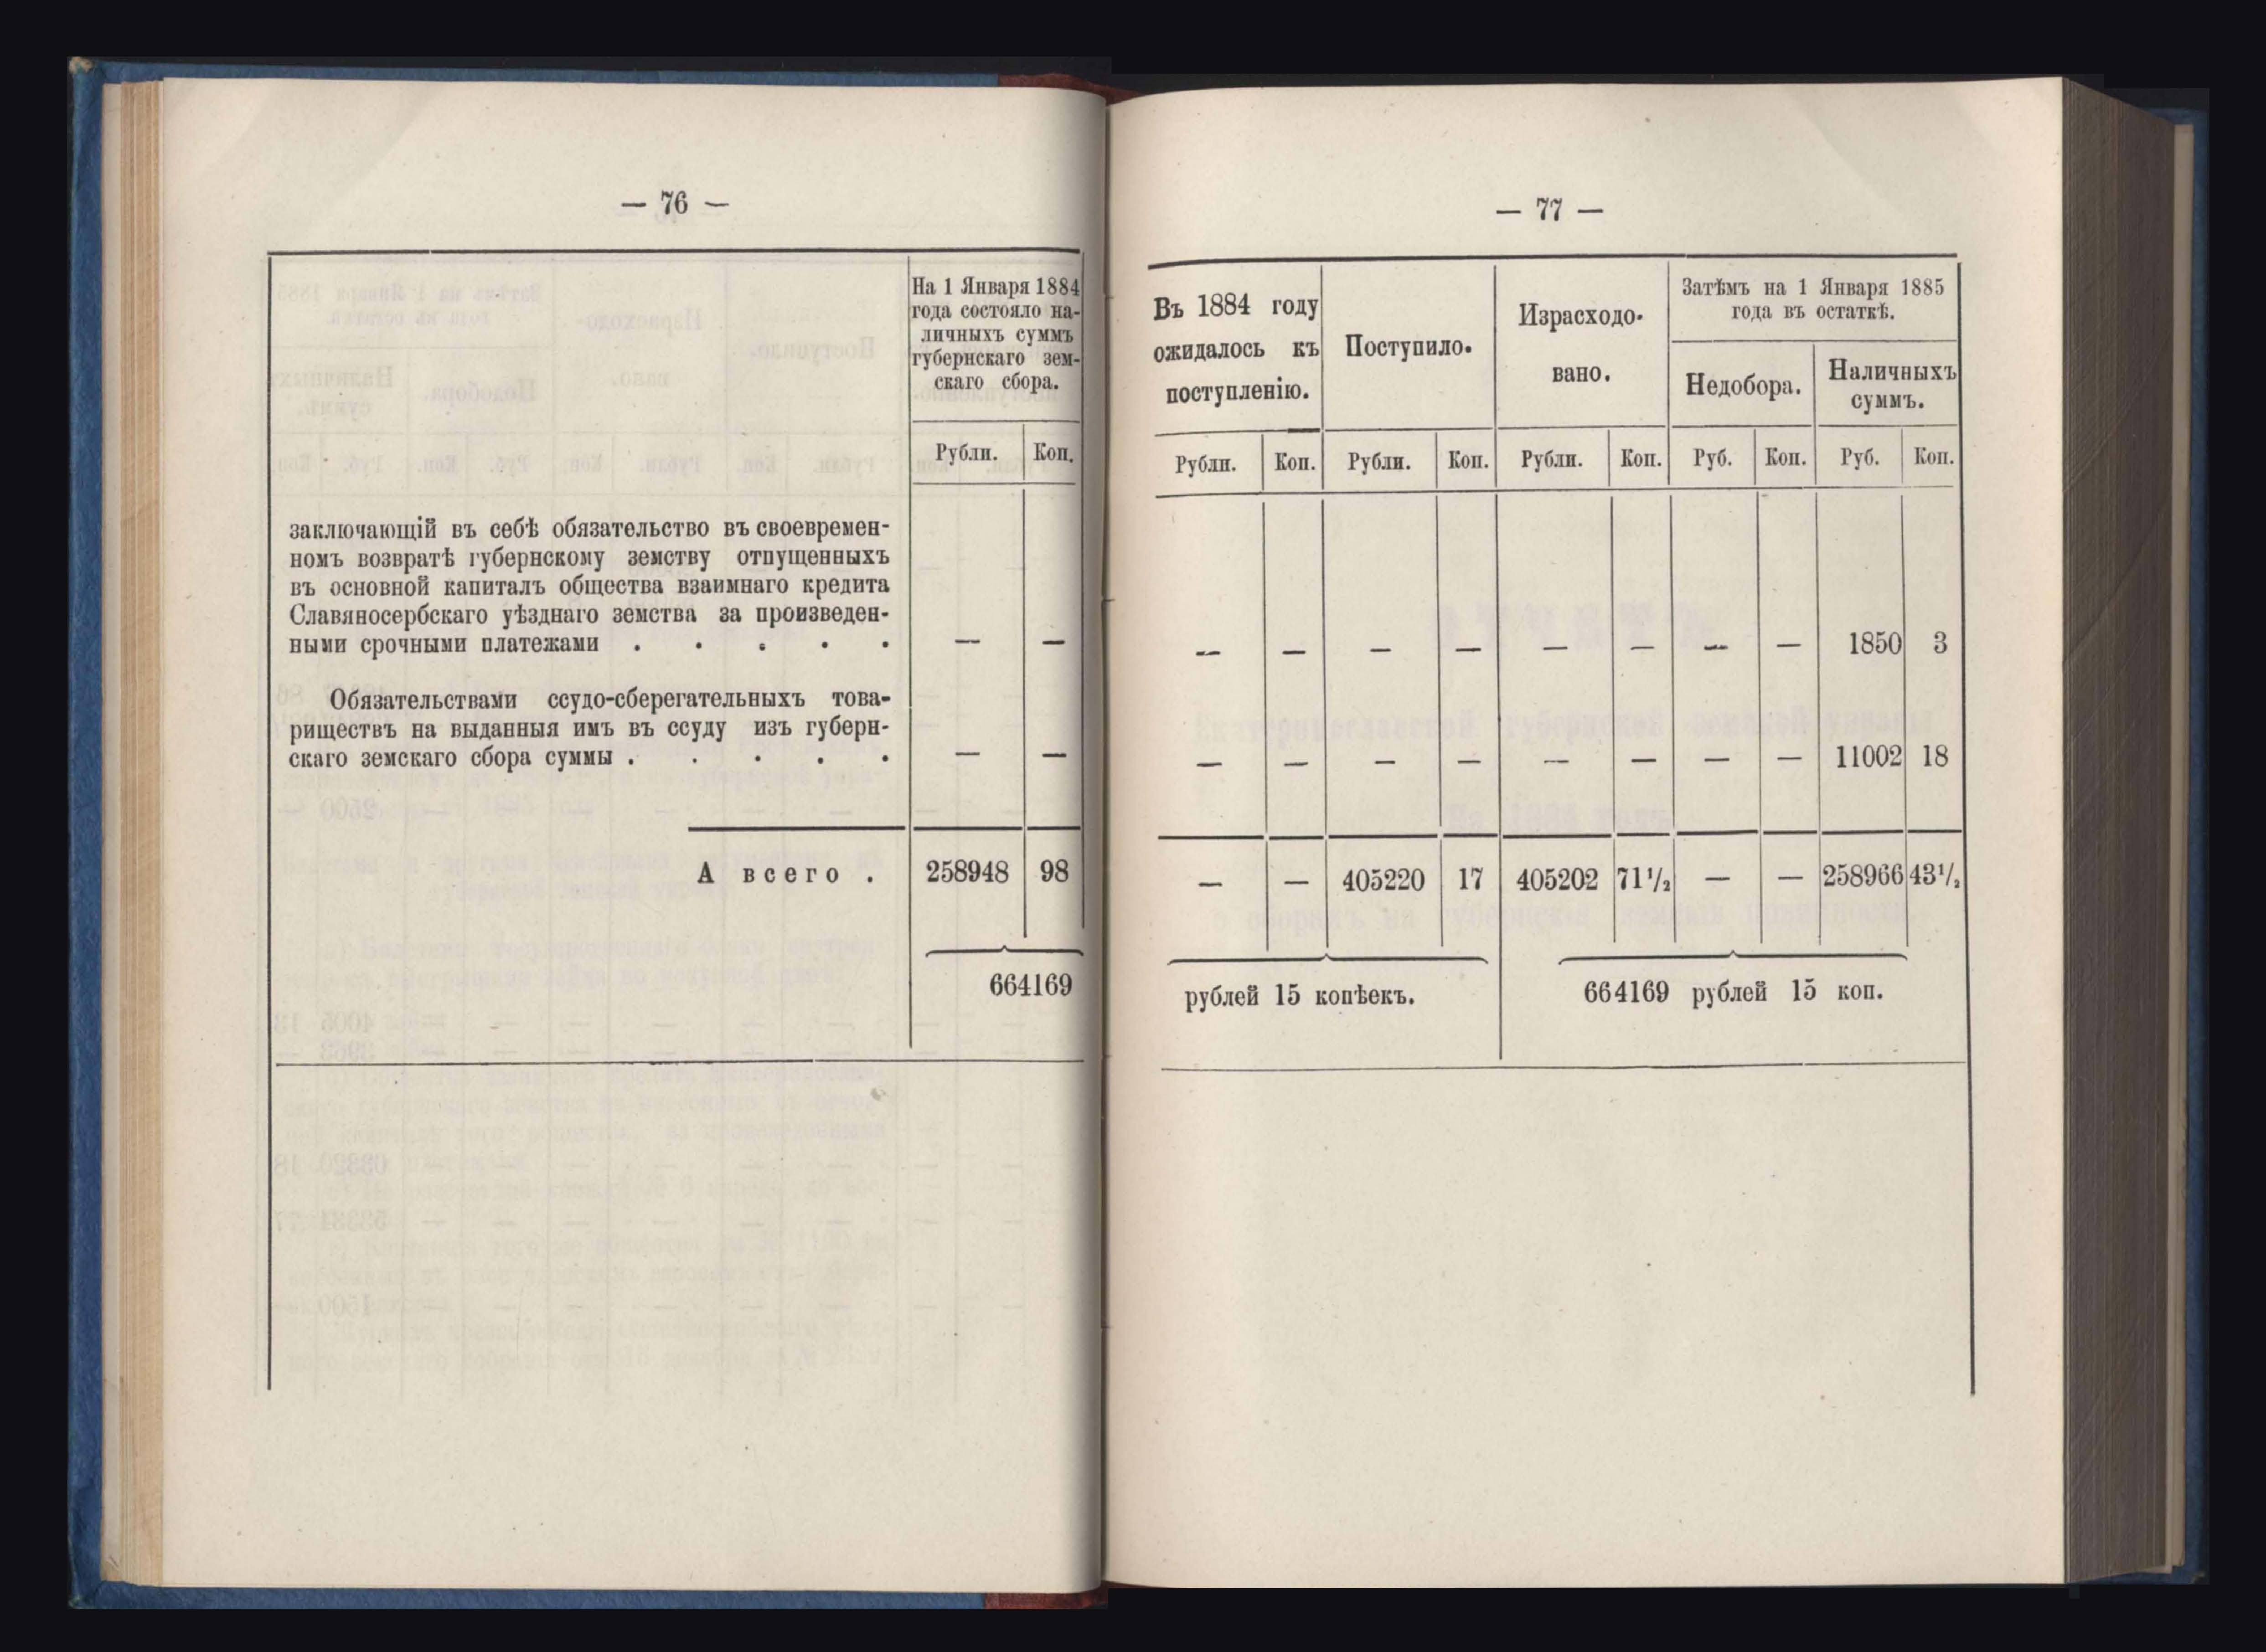 — 76 —
На 1 Января 1884
года состояло на-
личныхъ суммъ
губернскаго зем-
скаго сбора.
Рубли. Коп.
заключающій въ себѣ обязательство въ своевремен-
номъ возвратѣ губернскому земству отпущенныхъ
въ основной капиталъ общества взаимнаго кредита
Славяносербскаго уѣзднаго земства за произведен-
ными срочными платежами . . . . . — —
Обязательствами ссудо-сберегательныхъ това-
риществъ на выданныя имъ въ ссуду изъ губерн-
скаго земскаго сбора суммы . . . . . — —
А всего . 258948 98
664169
— 77 —
Въ 1884 году
ожидалось къ
поступленію.
Поступило.
Израсходо-
вано.
Затѣмъ на 1 Января 1885
года въ остаткѣ.
Недобора.
Наличныхъ
суммъ.
Рубли. Коп. Рубли. Коп. Рубли. Коп. Руб. Коп. Руб. Коп.
— — — — — — — — 1850 3
— — — — — — — — 11002 18
— — 405220 17 405202 71½ — — 258966 43½
рублей 15 копѣекъ. 664169 рублей 15 коп.